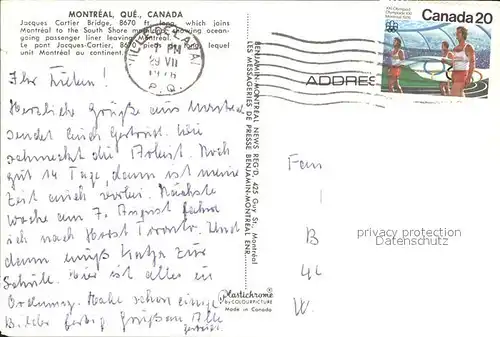 MONTRÉAL, QUÉ., CANADA
Jacques Cartier Bridge, 8670 ft. long, which joins
Montréal to the South Shore showing ocean-
going passenger liner leaving Montréal.
Le pont Jacques-Cartier, 8670 pieds de long, lequel
unit Montréal au continent.
PM
29 VII
1976
P. Q.
XXI Olympiad
Olympiade XXI
Montréal 1976
Canada 20
ADDRE
Ihr Lieben!
Herzliche Grüße aus Montreal
sendet Euch Gertrud. Wie
schmeckt die Arbeit. Noch
gut 14 Tage, dann ist meine
Zeit auch vorbei. Nächste
Woche am 7. August fahre
ich nach Toronto. Und
dann muß Katja zur
Schule. Hier ist alles in
Ordnung. Habe schon einige
Bilder fertig Grüßen Alle
BENJAMIN-MONTREAL NEWS REG'D, 425 Guy St., Montréal
LES MESSAGERIES DE PRESSE BENJAMIN-MONTREAL ENR.
Plastichrome
by COLOURPICTURE
Made in Canada
Fam
B
W.
privacy protection
Datenschutz